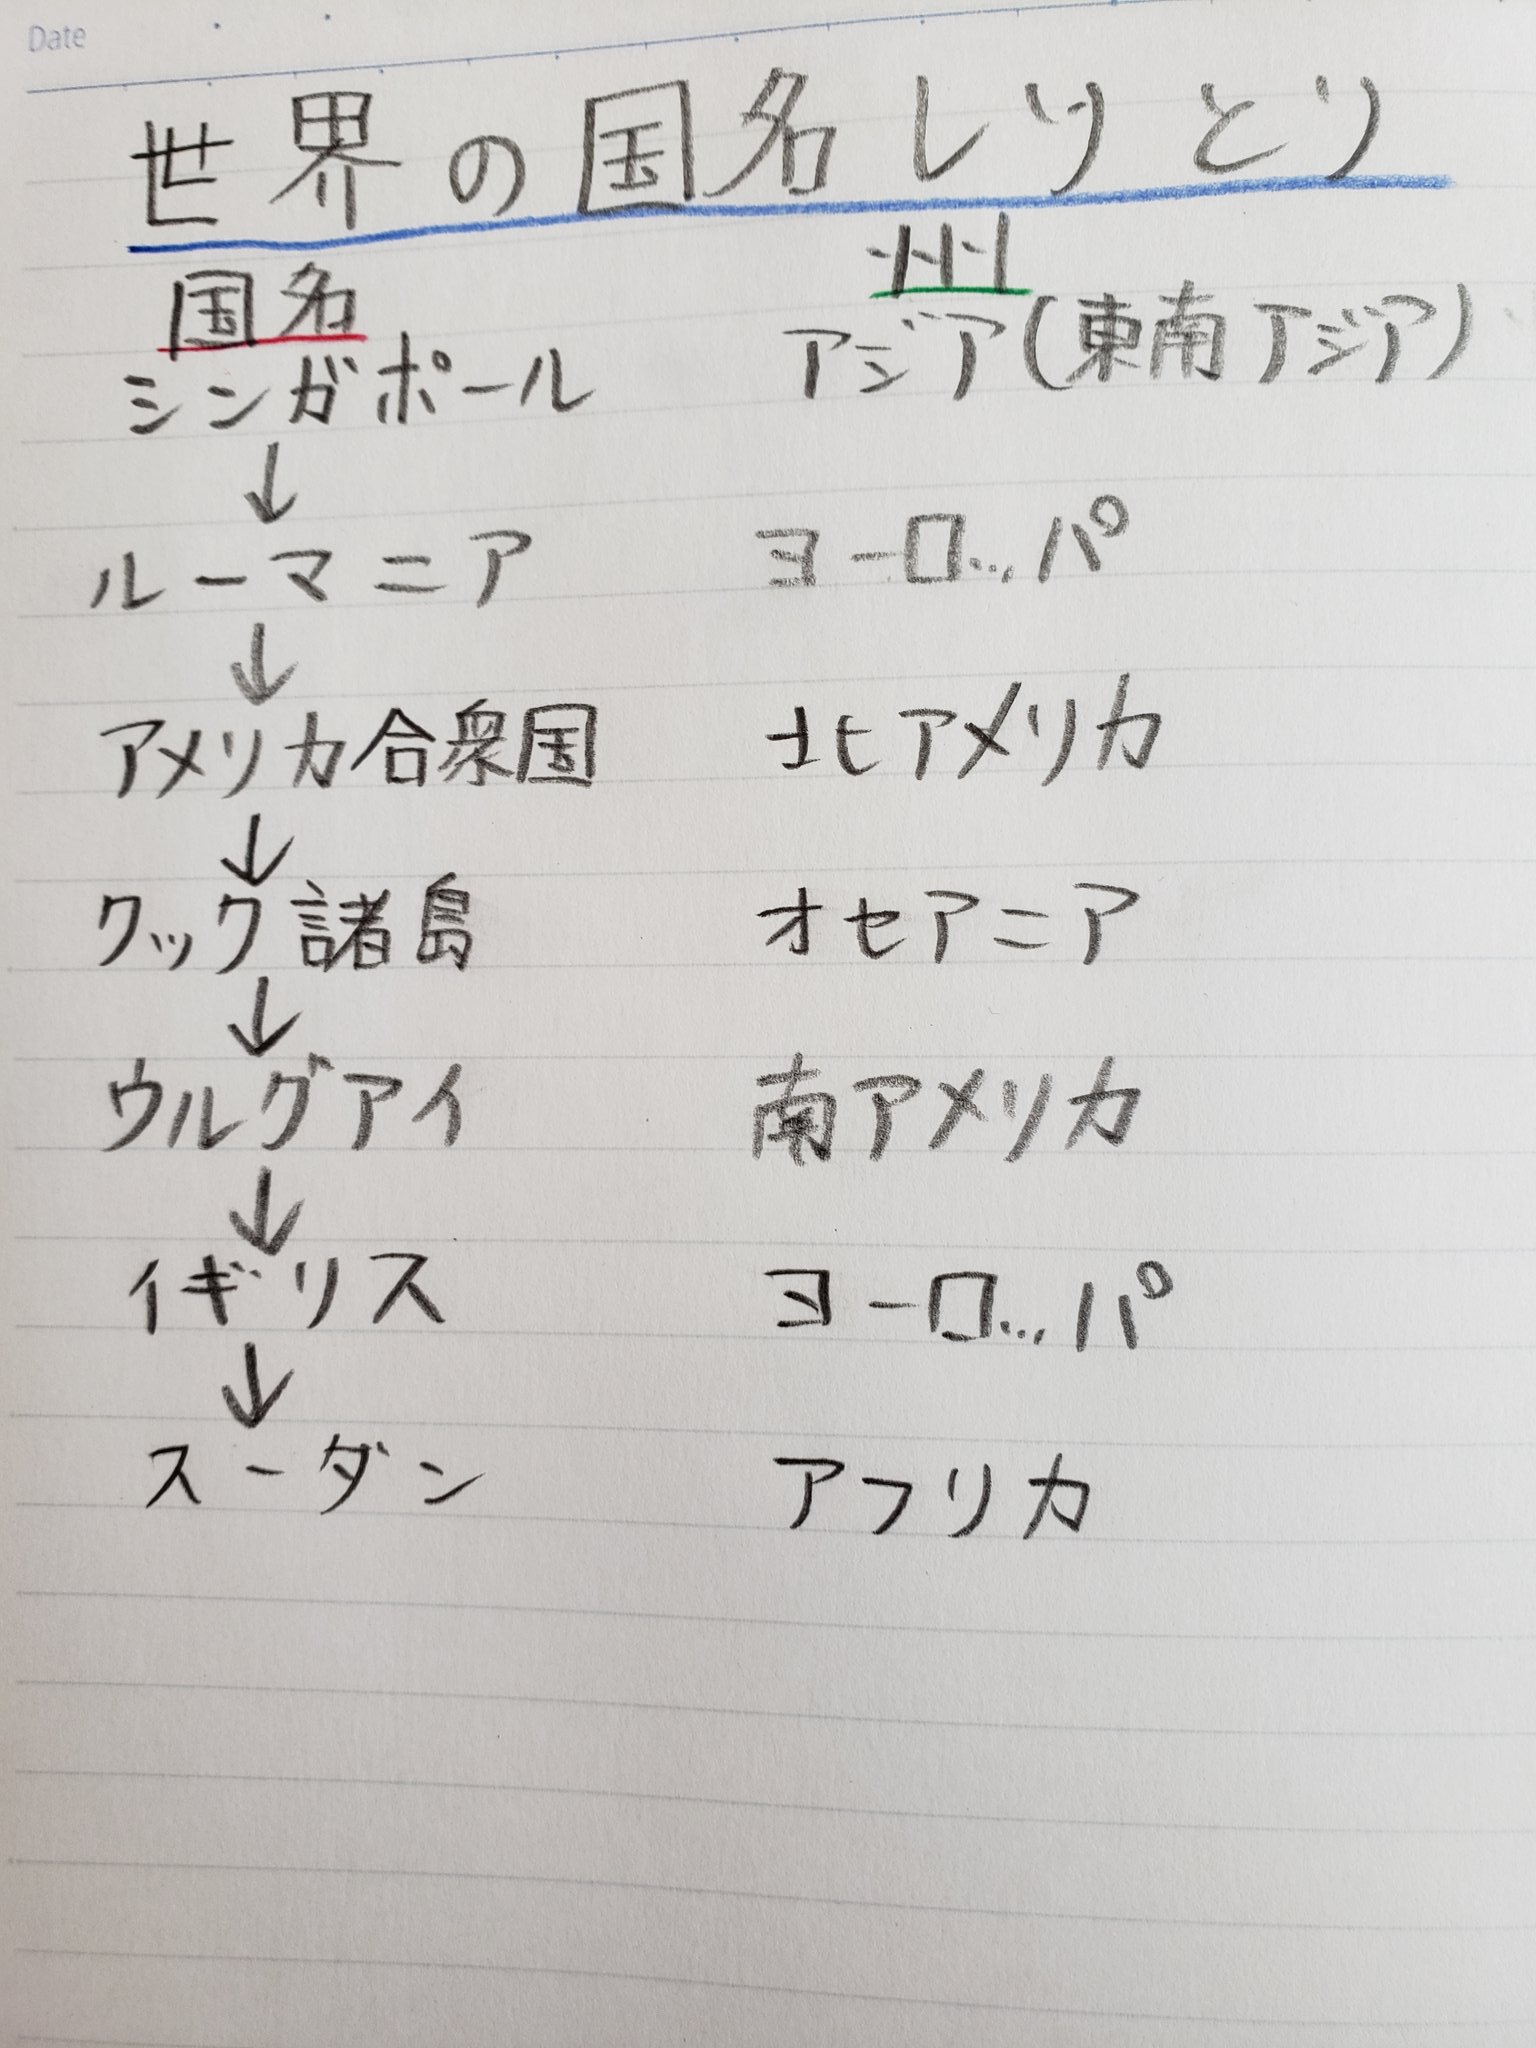 Date
世界の国名しりとり
国名 州
シンガポール アジア(東南アジア)
↓
ルーマニア ヨーロッパ
↓
アメリカ合衆国 北アメリカ
↓
クック諸島 オセアニア
↓
ウルグアイ 南アメリカ
↓
イギリス ヨーロッパ
↓
スーダン アフリカ